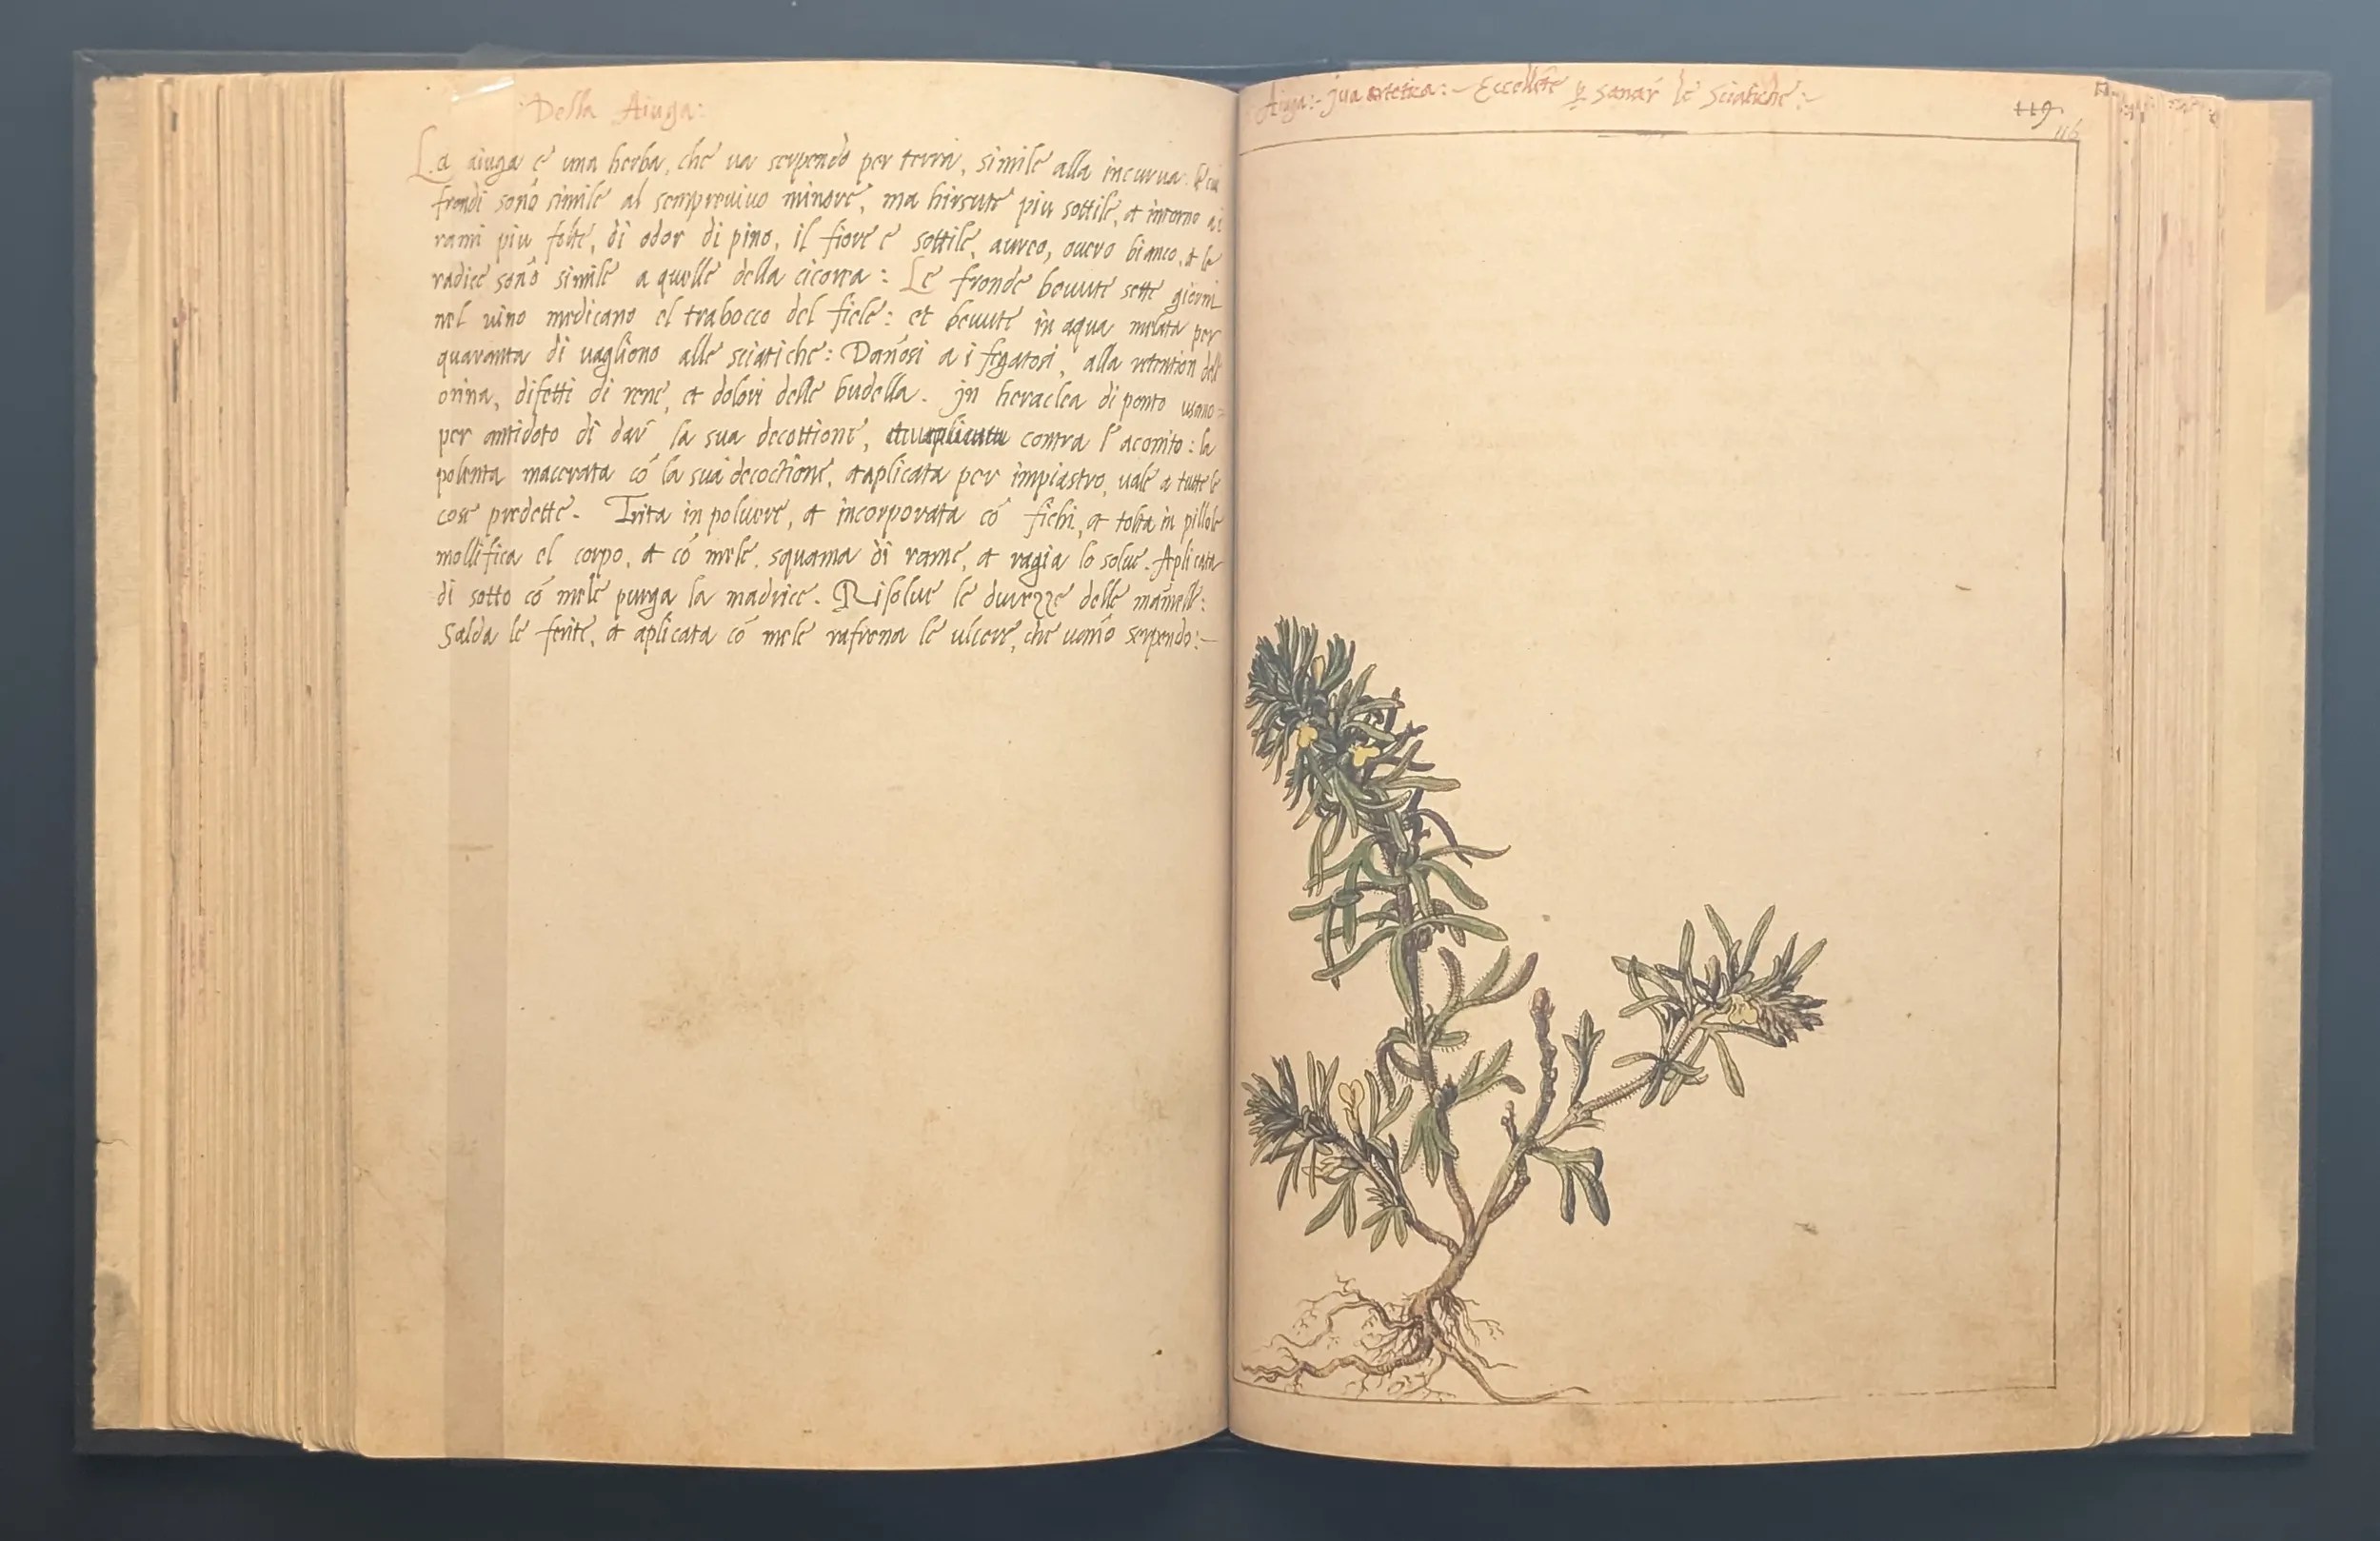 Della Aiuga:
La aiuga é una herba, che va serpendo per terra, simile alla incurva. Le cui
frondi sonó simile al sempreuiuo minore, ma hirsute piu sottile, et intorno ai
rami piu folte, di odor di pino, il fiore é sottile, aureo, ouero bianco, et le
radice sonó simile a quelle della cicorea: Le fronde beuute sette giorni
nel uino medicano el trabocco del fiele: et beuute in aqua melata per
quaranta di uagliono alle sciatiche: Danósi a i figatosi, alla retention dell
orina, difetti di rene, et dolori delle budella. jn heraclea di ponto usano
per antidoto di dar la sua decottione, contra l'aconito: la
polenta macerata có la sua decoctione, et aplicata per impiastro, uale a tutte le
cose predette. Trita in poluere, et incorporata có fichi, et tolta in pillole
mollifica el corpo, et có mele, squama di rame, et ragia lo solue. Aplicata
di sotto có mele purga la madrice. Risolue le durezze delle mamelle:
Salda le ferite, et aplicata có mele rafrena le ulcere, che uanó serpendo:-
Aiuga:- jua artetica:- Eccellẽte p sanar le Sciatiche:-
119
116